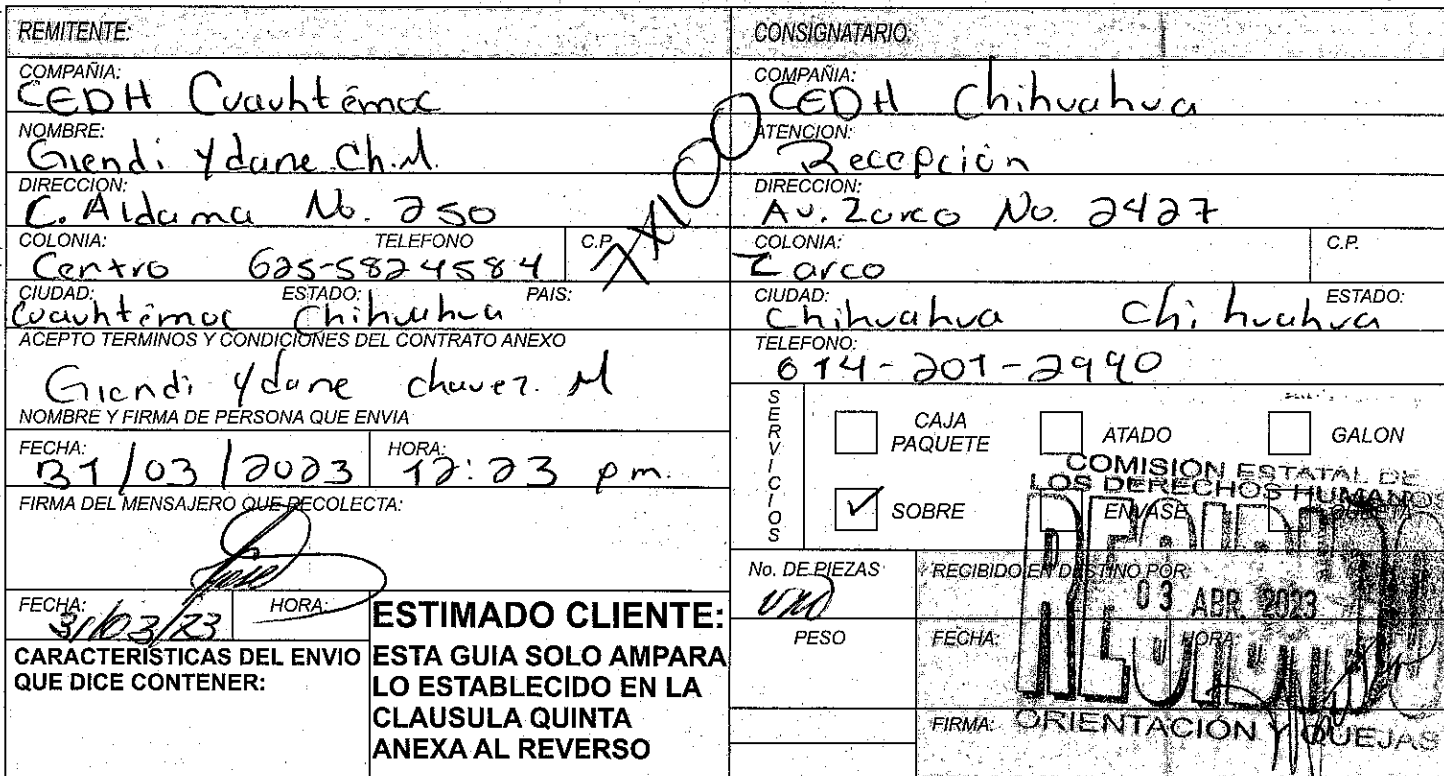 REMITENTE:
COMPAÑIA:
CEDH Cuauhtémoc
NOMBRE:
Giendi Ydane Ch.M.
DIRECCION:
C. Aldama No. 250
COLONIA: TELEFONO C.P.
Centro 625-5824584
CIUDAD: ESTADO: PAIS:
Cuauhtémoc Chihuahua
ACEPTO TERMINOS Y CONDICIONES DEL CONTRATO ANEXO
Giendi Ydane chavez. M
NOMBRE Y FIRMA DE PERSONA QUE ENVIA
FECHA: HORA:
31/03/2023 12:23 pm.
FIRMA DEL MENSAJERO QUE RECOLECTA:
FECHA: HORA:
31/03/23
CARACTERÍSTICAS DEL ENVIO
QUE DICE CONTENER:
ESTIMADO CLIENTE:
ESTA GUIA SOLO AMPARA
LO ESTABLECIDO EN LA
CLAUSULA QUINTA
ANEXA AL REVERSO
CONSIGNATARIO:
COMPAÑIA:
CEDH Chihuahua
ATENCION:
Recepción
DIRECCION:
Av. Zarco No. 2427
COLONIA: C.P.
Zarco
CIUDAD: ESTADO:
Chihuahua Chihuahua
TELEFONO:
614-201-2990
SERVICIOS
CAJA PAQUETE
ATADO
GALON
SOBRE
ENVASE
COMISIÓN ESTATAL DE
LOS DERECHOS HUMANOS
RECIBIDO
No. DE PIEZAS
RECIBIDO EN DESTINO POR:
03 ABR. 2023
PESO
FECHA: HORA:
FIRMA:
ORIENTACIÓN Y QUEJAS